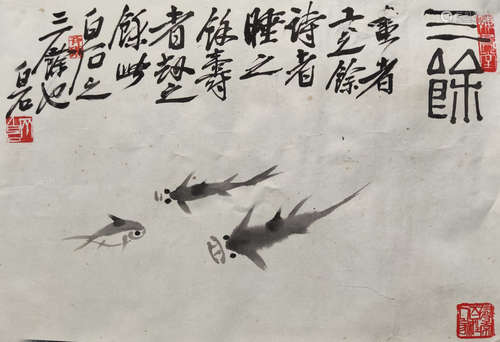 三餘
畫者
工之餘
詩者
睡之
餘壽
者劫之
餘此
白石之
三餘也
白石